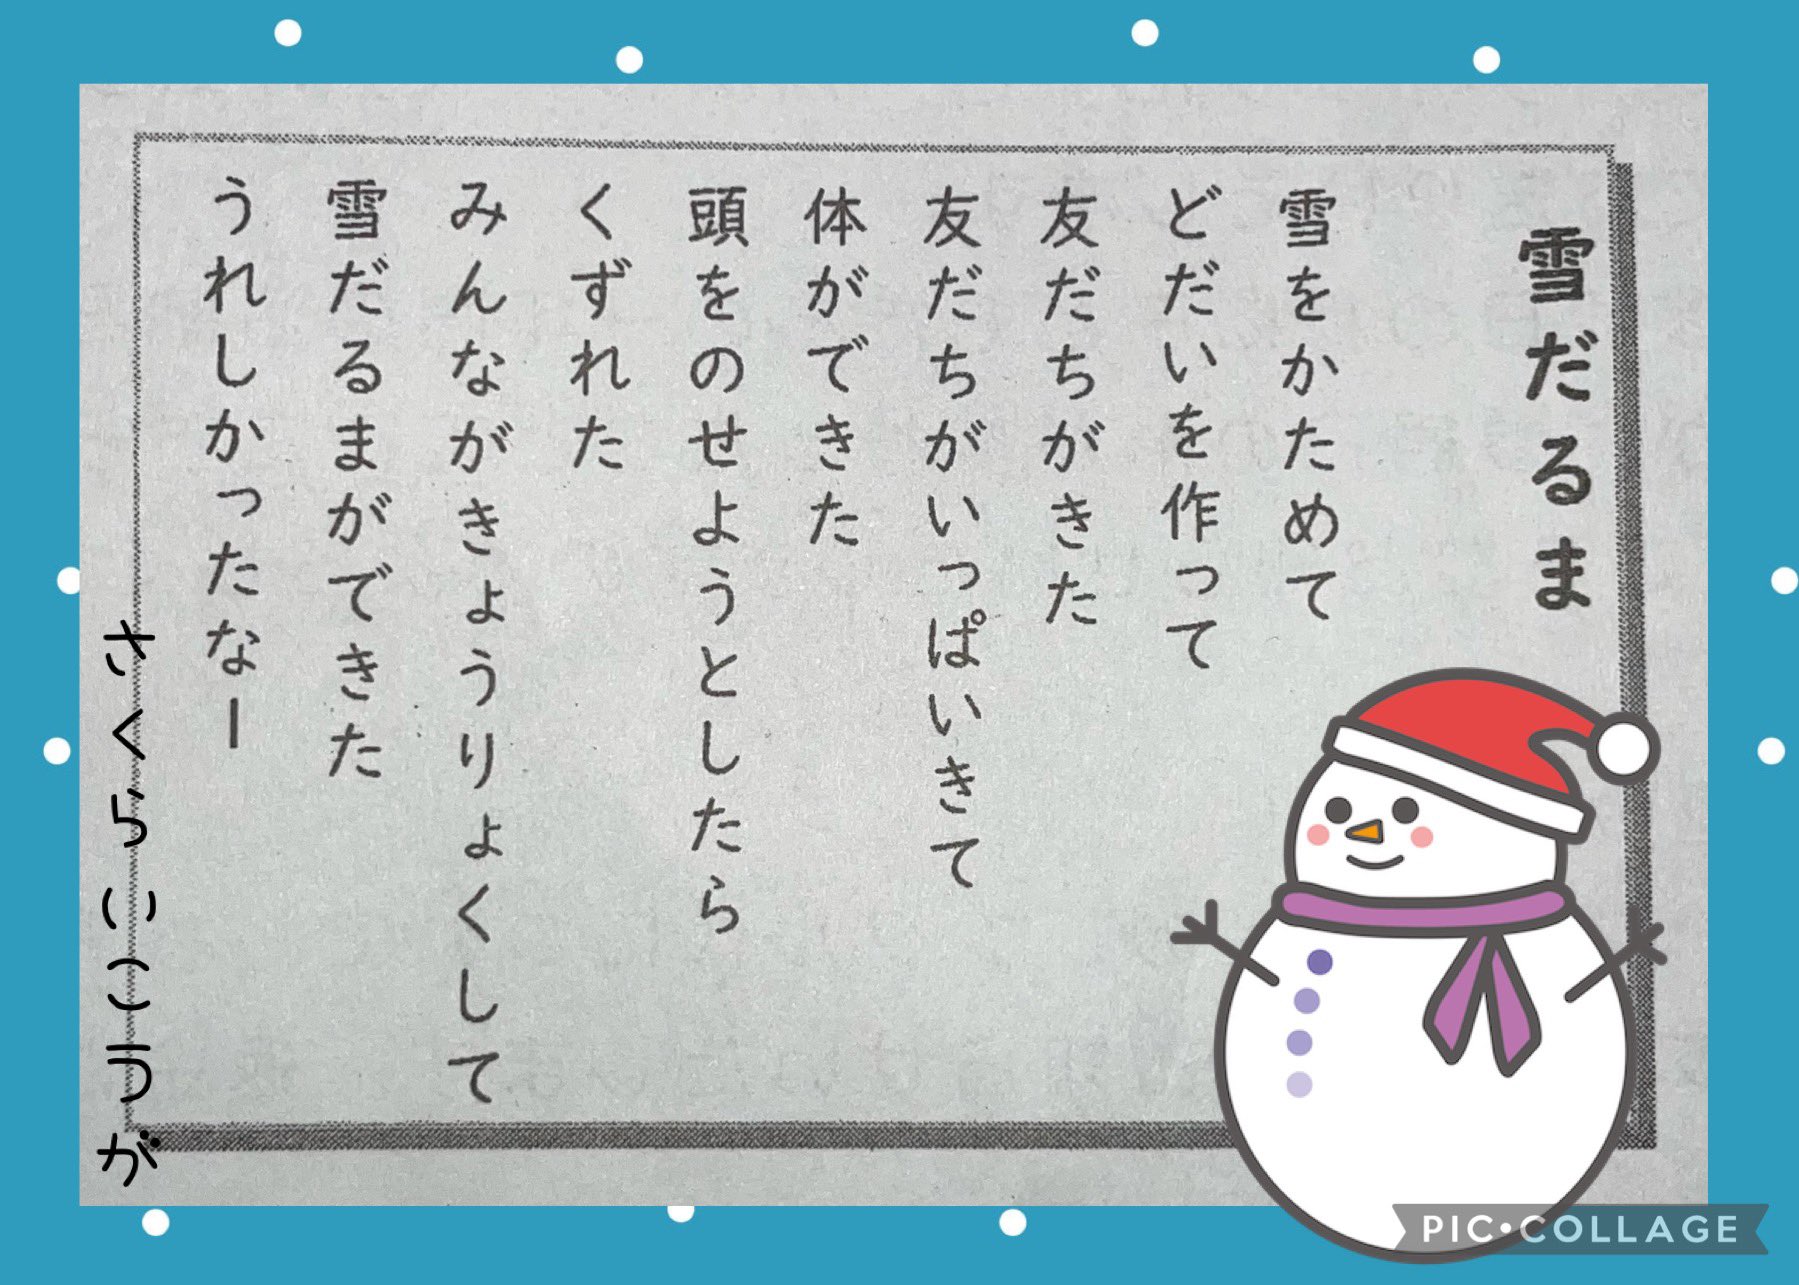 雪だるま
雪をかためて
どだいを作って
友だちがきた
友だちがいっぱいきて
体ができた
頭をのせようとしたら
くずれた
みんながきょうりょくして
雪だるまができた
うれしかったなー
さくらいこうが
PIC•COLLAGE